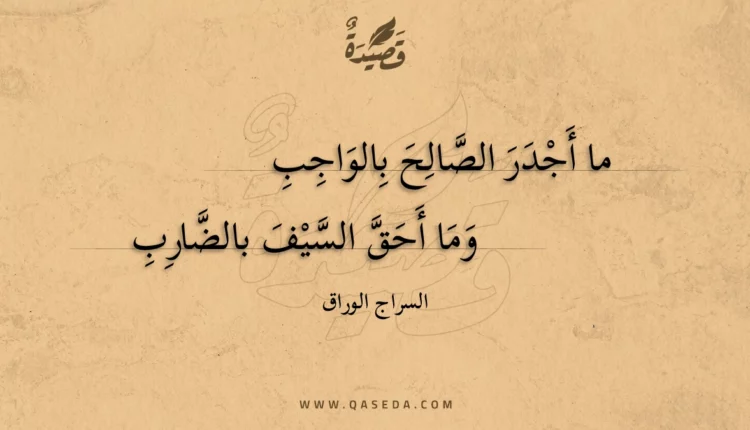 قَصِيْدَةٌ
ما أَجْدَرَ الصَّالِحَ بِالوَاجِبِ
وَمَا أَحَقَّ السَّيْفَ بالضَّارِبِ
السراج الوراق
WWW.QASEDA.COM